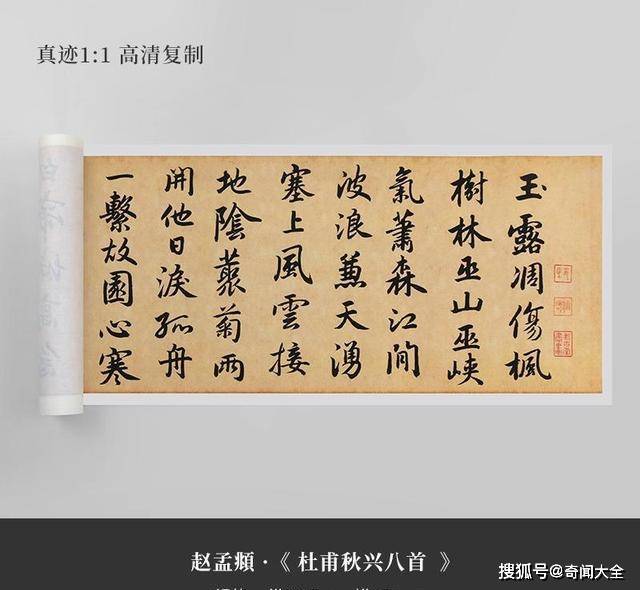 真迹1:1 高清复制
玉露凋傷楓
樹林巫山巫峽
氣蕭森江間
波浪兼天湧
塞上風雲接
地陰藂菊兩
開他日淚孤舟
一繫故園心寒
赵孟頫·《 杜甫秋兴八首 》
搜狐号@奇闻大全